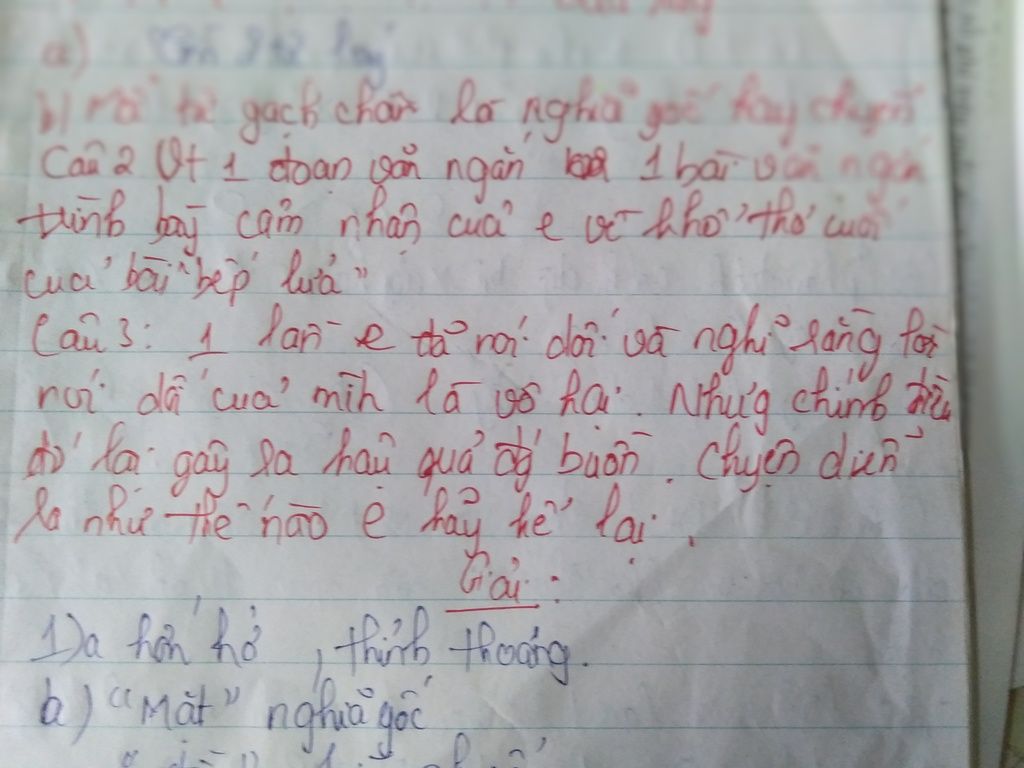 a) lay
b) Mỗi từ gạch chân là nghĩa gốc hay chuyển
Câu 2 Vt 1 đoạn văn ngắn 1 bài văn ngắn
trình bày cảm nhận của e về khổ thơ cuối
của bài "bếp lửa"
Câu 3: 1 lần e đã nói dối và nghĩ rằng lời
nói dối của mình là vô hại. Nhưg chính điều
đó lại gây ra hậu quả đg buồn. Chyện diễn
ra như thế nào e hãy kể lại.
Giải:
1) a hớn hở, thỉnh thoảng.
b) "Mặt" nghĩa gốc